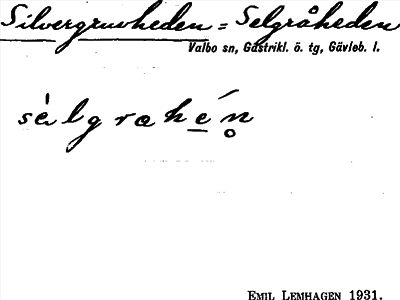 Silvergruvheden = Selgråheden
Valbo sn, Gästrikl. ö. tg, Gävleb. l.
sèlgrahé̲n̥
EMIL LEMHAGEN 1931.